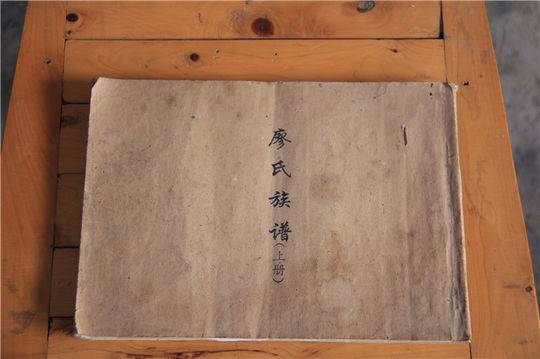 廖氏族谱(上册)